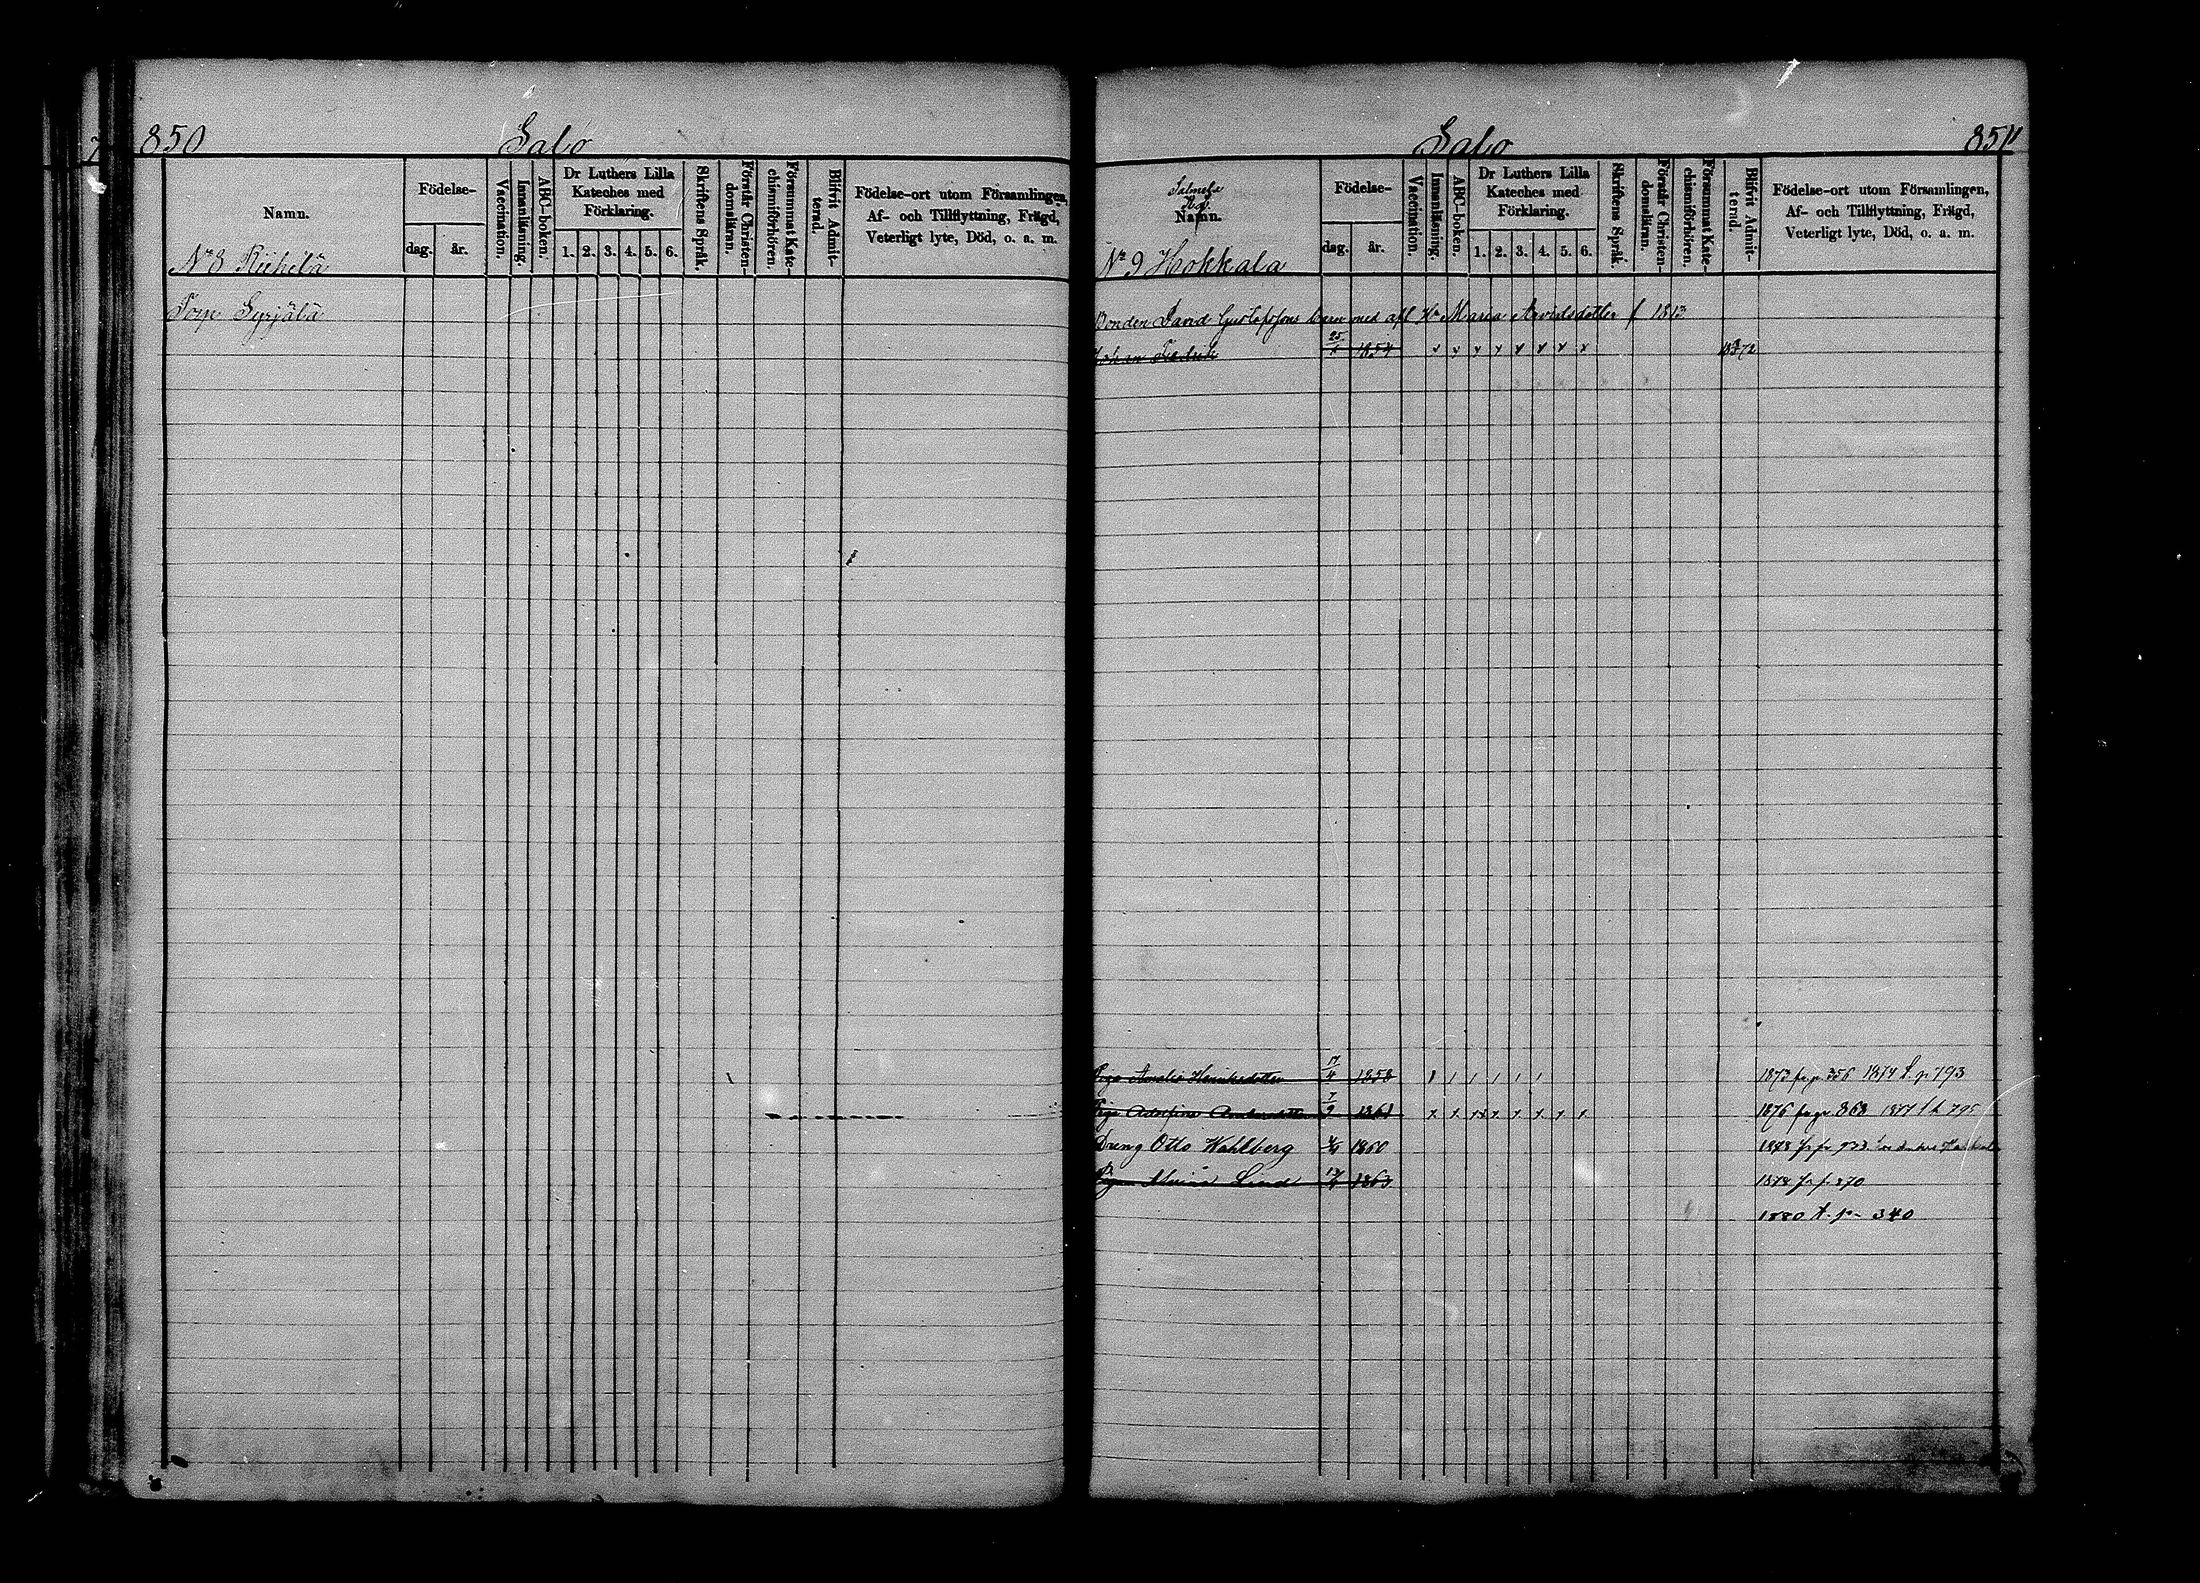 850
Salo
Namn.
Födelse-
dag.
år.
Vaccination.
Innanläsning.
ABC-boken.
Dr Luthers Lilla
Kateches med
Förklaring.
1. 2. 3. 4. 5. 6.
Skriftens Språk.
Förstår Christen-
domsläran.
Försummat Kate-
chismiförhören.
Blifvit Admit-
terad.
Födelse-ort utom Församlingen,
Af- och Tillflyttning, Frägd,
Veterligt lyte, Död, o. a. m.
No 8 Riihelä
Syrjälä
Salo
851
Namn.
Födelse-
dag.
år.
Vaccination.
Innanläsning.
ABC-boken.
Dr Luthers Lilla
Kateches med
Förklaring.
1. 2. 3. 4. 5. 6.
Skriftens Språk.
Förstår Christen-
domsläran.
Försummat Kate-
chismiförhören.
Blifvit Admit-
terad.
Födelse-ort utom Församlingen,
Af- och Tillflyttning, Frägd,
Veterligt lyte, Död, o. a. m.
No 9 Hokkala
Bonden David Gustafssons barn med afl. Maria Arvidsdotter f 1813
Johan 25 1854
Piga Amalia Henriksdotter 17/4 1858 1873 fr p. 356 1874 t. p. 793
Piga Adolfina 7/9 1861 1876 fr p. 863 1877 795
Dreng Otto Wahlberg 1860 1878 fr p. 733
Piga Lind 1863 1878 fr p. 270
1880 t. p. 340